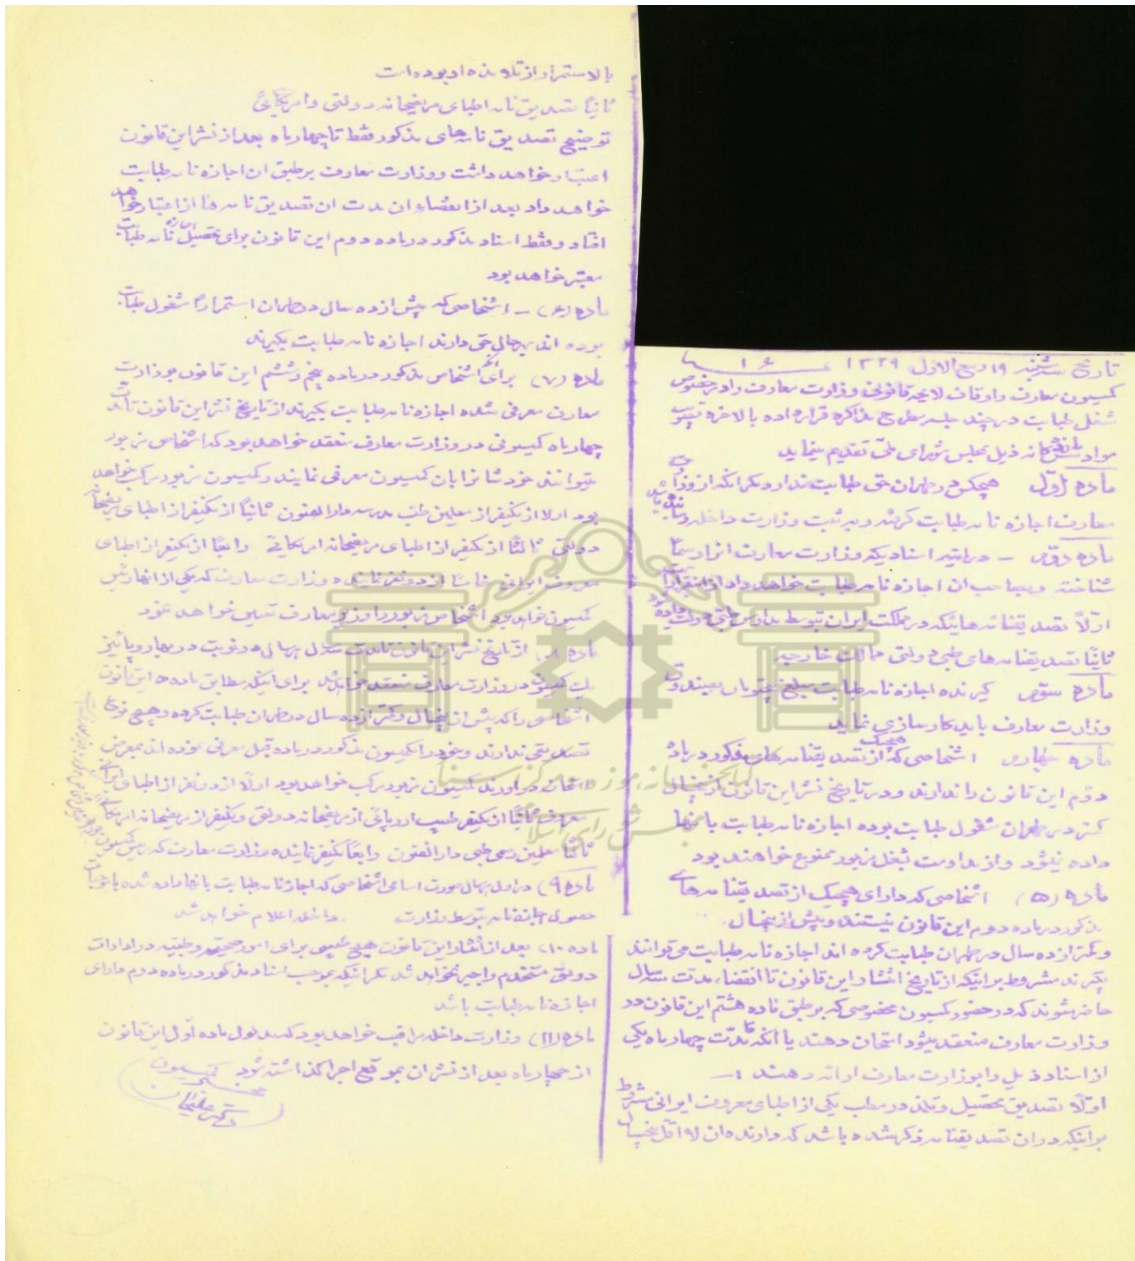 تاریخ سه‌شنبه ۱۹ ربیع الاول ۱۳۲۹
کمیسیون معارف و اوقاف لایحه قانونی وزارت معارف را در خصوص
شغل طبابت در چند جلسه مطرح مذاکره قرار داده بالاخره بترتیب
مواد ذیل بمجلس شورای ملی تقدیم مینماید
مادهٔ اول هیچکس در طهران حق طبابت ندارد مگر آنکه از وزارت
معارف اجازه نامه طبابت گرفته و به ثبت وزارت داخله رسانیده باشد
ماده دوم ـ دیپلم و اسنادیکه وزارت معارف آنرا رسماً
شناخته و بصاحب آن اجازه نامه طبابت خواهد داد از اینقرار است
اولاً تصدیقنامه هائیکه در مملکت ایران بتوسط مدارس طبی دولتی داده
ثانیاً تصدیقنامه های طبی دولتی ممالک خارجه
ماده سوم گیرنده اجازه نامه طبابت مبلغ پنجتومان بصندوق
وزارت معارف باید کارسازی نماید
ماده چهارم اشخاصی که هیچیک از تصدیقنامه های مذکور در ماده
دوم این قانون را ندارند و در تاریخ نشر این قانون از پنجسال
کمتر در طهران مشغول طبابت بوده اجازه نامه طبابت بآنها
داده نمیشود و از مداومت بشغل مزبور ممنوع خواهند بود
مادهٔ (۵) اشخاصی که دارای هیچیک از تصدیقنامه های
مذکور در ماده دوم این قانون نیستند و بیش از پنجسال
و کمتر از ده سال در طهران طبابت کرده اند اجازه نامه طبابت میتوانند
بگیرند مشروط براینکه از تاریخ انتشار این قانون تا انقضاء مدت سه سال
حاضر شوند که در حضور کمیسیون مخصوصی که بر طبق ماده هشتم این قانون در
وزارت معارف منعقد میشود امتحان دهند یا آنکه تا مدت چهار ماه یکی
از اسناد ذیل را بوزارت معارف ارائه دهند :ـ
اولاً تصدیق تحصیل و تلمذ در مطب یکی از اطبای معروف ایرانی مشروط
براینکه در آن تصدیقنامه ذکر شده باشد که دارنده آن لااقل پنجسال
بالاستمرار از تلامذه او بوده است
ثانیاً تصدیق نامه اطبای مریضخانه دولتی و امریکائی
توضیح تصدیق نامه های مذکور فقط تا چهار ماه بعد از نشر این قانون
اعتبار خواهد داشت و وزارت معارف برطبق آن اجازه نامه طبابت
خواهد داد بعد از انقضاء آن مدت آن تصدیق نامه ها از اعتبار خواهد
افتاد و فقط اسناد مذکور در ماده دوم این قانون برای تحصیل اجازه نامه طبابت
معتبر خواهد بود
ماده (۶) ـ اشخاصی که بیش از ده سال در طهران استمراراً مشغول طبابت
بوده اند بهرحال حق دارند اجازه نامه طبابت بگیرند
ماده (۷) برای آنکه اشخاص مذکور در ماده پنجم و ششم این قانون بوزارت
معارف معرفی شده اجازه نامه طبابت بگیرند از تاریخ نشر این قانون تا مدت
چهار ماه کمیسیونی در وزارت معارف منعقد خواهد بود که اشخاص مزبور
میتوانند خودشانرا بآن کمیسیون معرفی نمایند و کمیسیون مزبور مرکب خواهد
بود اولا از یکنفر از معلمین طب مدرسه دارالفنون ثانیاً از یکنفر از اطبای مریضخانه
دولتی ثالثاً از یکنفر از اطبای مریضخانه امریکائی رابعاً از یکنفر از اطبای
معروف ایرانی خامساً از دو نفر نماینده وزارت معارف که یکی از آنها رئیس
کمیسیون خواهد بود اشخاص مزبور را وزیر معارف تعیین خواهد نمود
ماده ۸ از تاریخ نشر این قانون تا مدت سه سال هر سال دو نوبت در بهار و پائیز
یک کمیسیون در وزارت معارف منعقد خواهد شد برای اینکه مطابق ماده ۵ این قانون
اشخاصی را که بیش از پنجسال و کمتر از ده سال در طهران طبابت کرده و هیچ نوع
تصدیقی ندارند و خود را بکمیسیون مذکور در ماده قبل معرفی نموده اند بمعرض
امتحان درآورند کمیسیون مزبور مرکب خواهد بود اولاً از دو نفر از اطبای ایرانی
معروف ثانیاً از یکنفر طبیب اروپائی از مریضخانه دولتی و یکنفر از مریضخانه امریکائی
ثالثاً معلمین رسمی طبی دارالفنون رابعاً یکنفر نماینده وزارت معارف که رئیس کمیسیون
ماده (۹) در اول هر سال صورت اسامی اشخاصی که اجازه نامه طبابت بآنها داده شده با ترتیب
حصول اجازه نامه بتوسط وزارت داخله اعلام خواهد شد
ماده ۱۰) بعد از انتشار این قانون هیچ طبیبی برای امور صحیه و طبیه در ادارات
دولتی مستخدم و اجیر نخواهد شد مگر اینکه بموجب اسناد مذکور در ماده دوم دارای
اجازه نامه طبابت باشد
ماده (۱۱) وزارت داخله مراقب خواهد بود که مدلول ماده اول این قانون
از چهار ماه بعد از نشر آن بموقع اجرا گذاشته شود
مخبر کمیسیون
دکتر علیخان